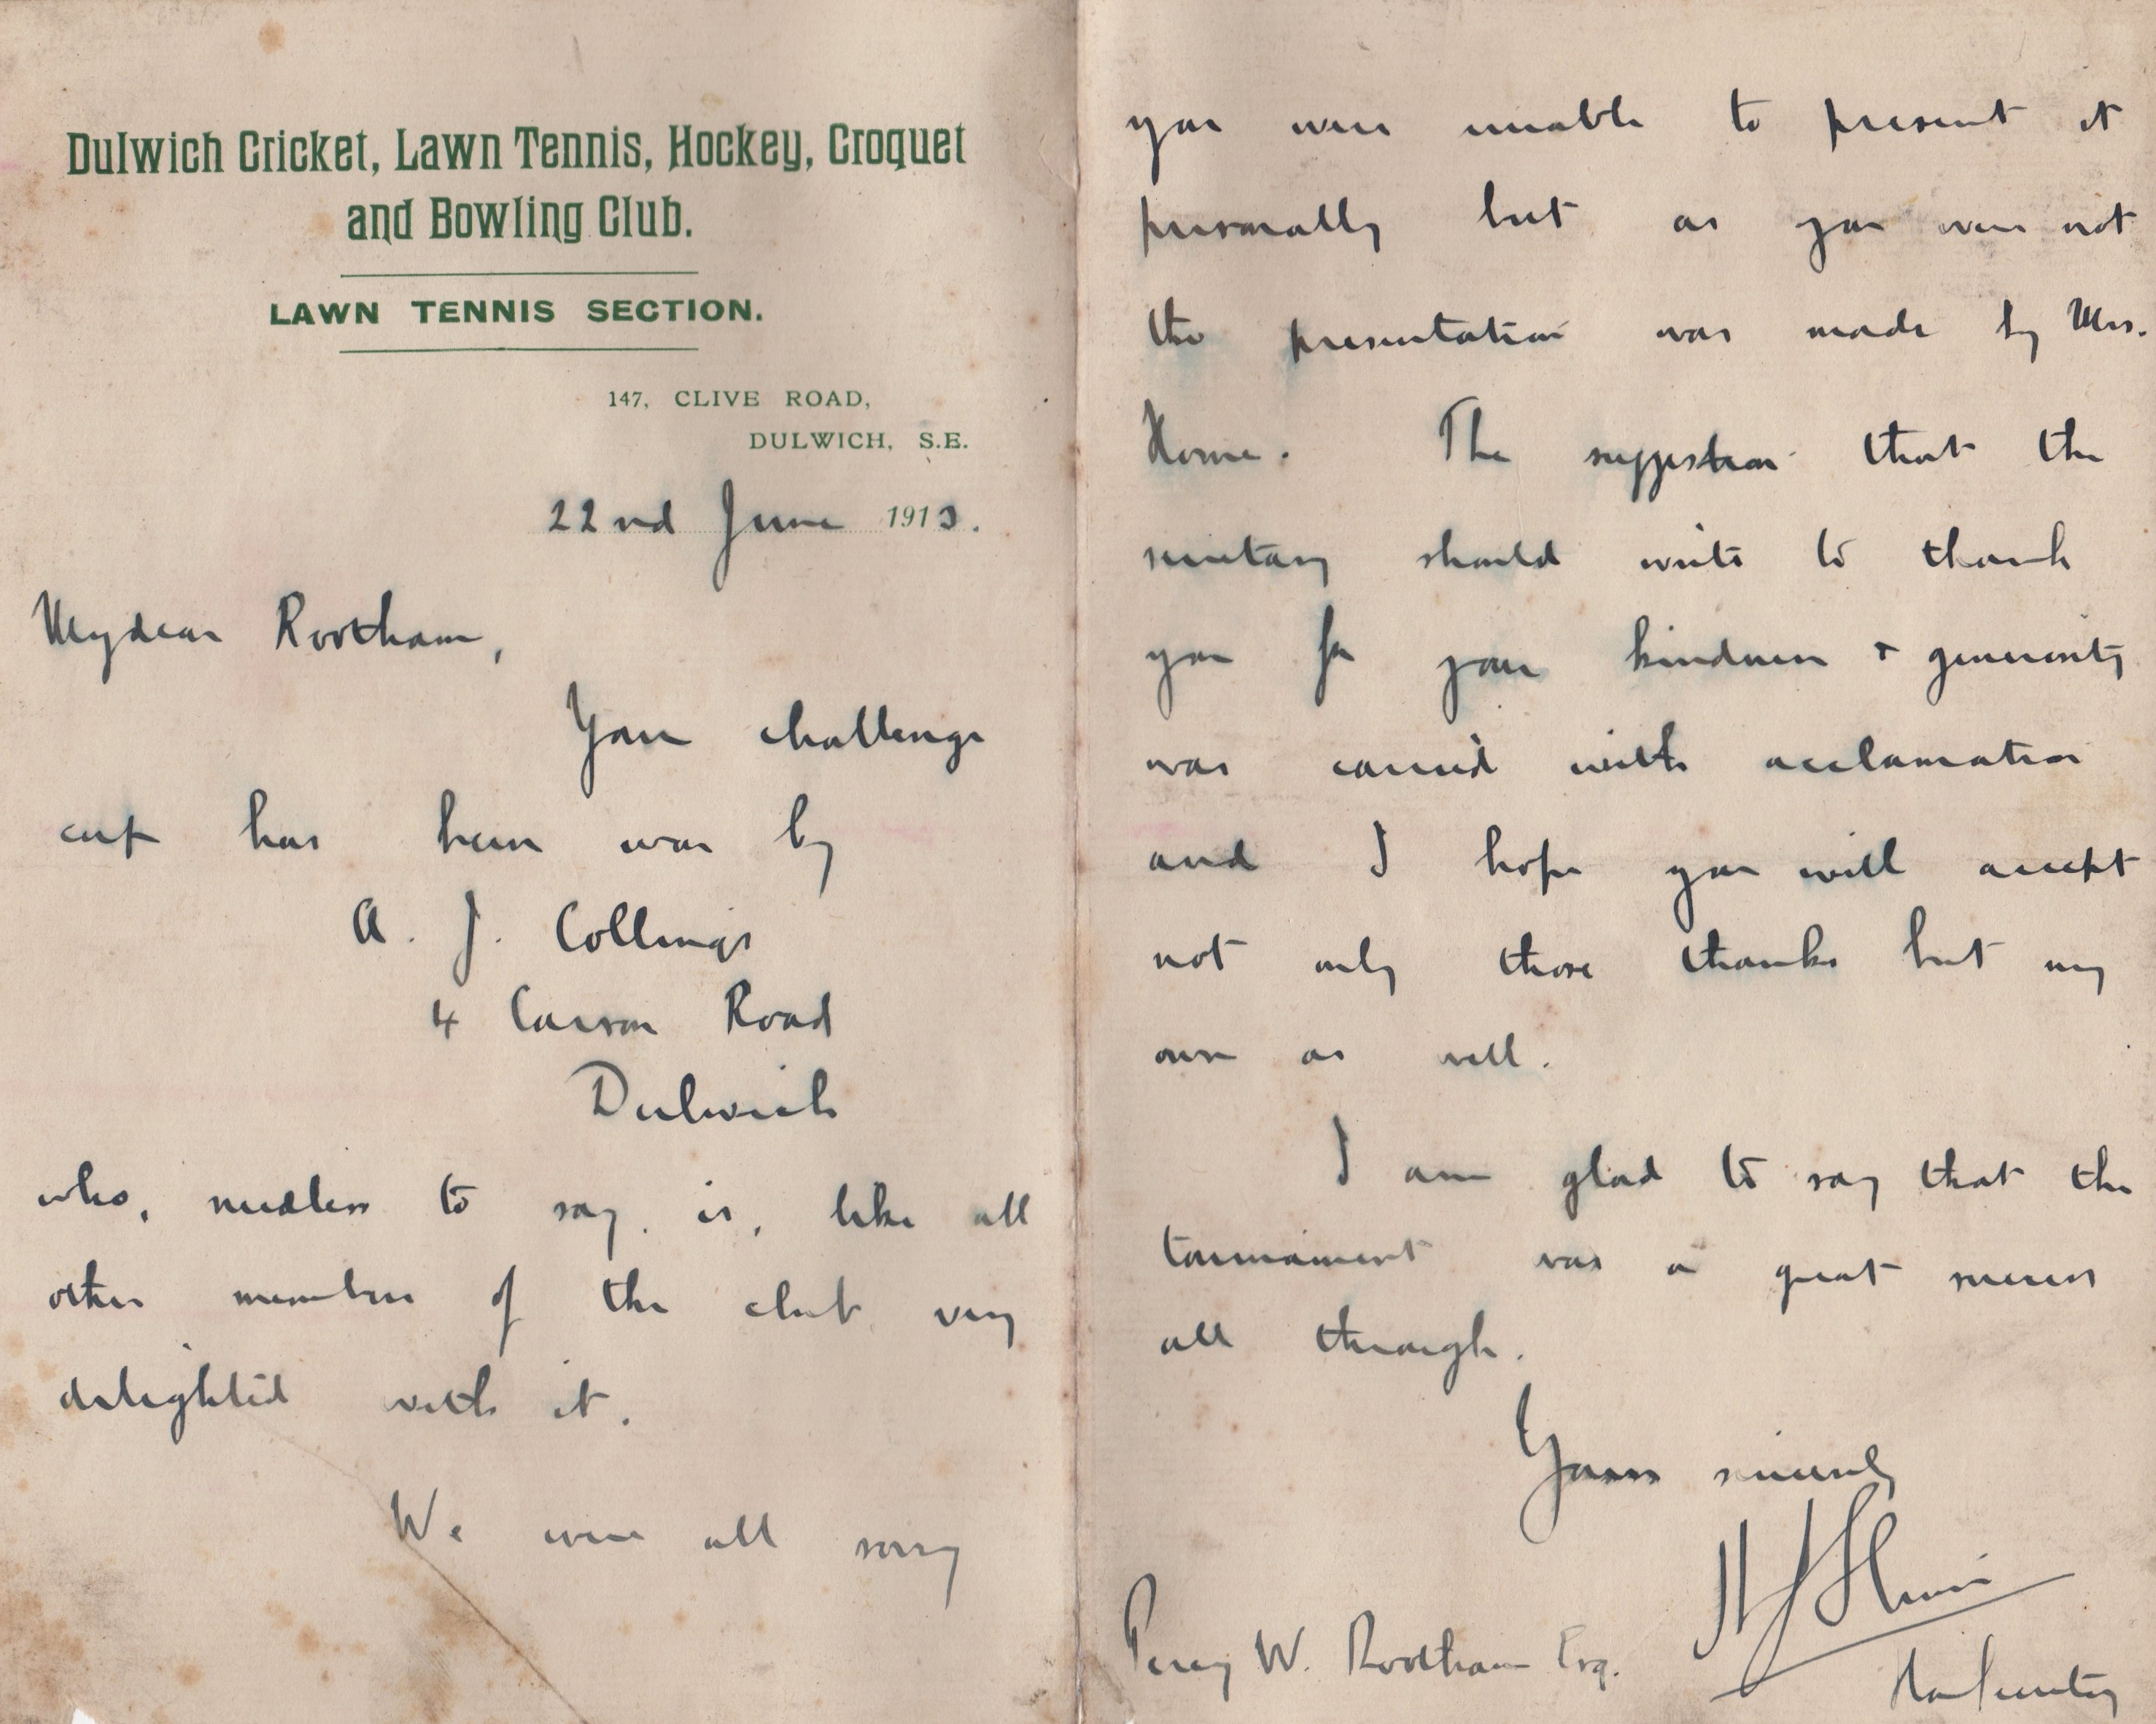 Dulwich Cricket, Lawn Tennis, Hockey, Croquet
and Bowling Club.
LAWN TENNIS SECTION.
147, CLIVE ROAD,
DULWICH, S.E.
22nd June 1913.
My dear Rootham,
Your challenge
cup has been won by
A. J. Collings
4 Carson Road
Dulwich
who, needless to say, is, like all
other members of the club very
delighted with it.
We were all sorry
you were unable to present it
personally but as you were not
the presentation was made by Mrs.
Horne. The suggestion that the
secretary should write to thank
you for your kindness & generosity
was carried with acclamation
and I hope you will accept
not only those thanks but my
own as well.
I am glad to say that the
tournament was a great success
all through.
Yours sincerely
Percy W. Rootham Esq.
Hon Secretary